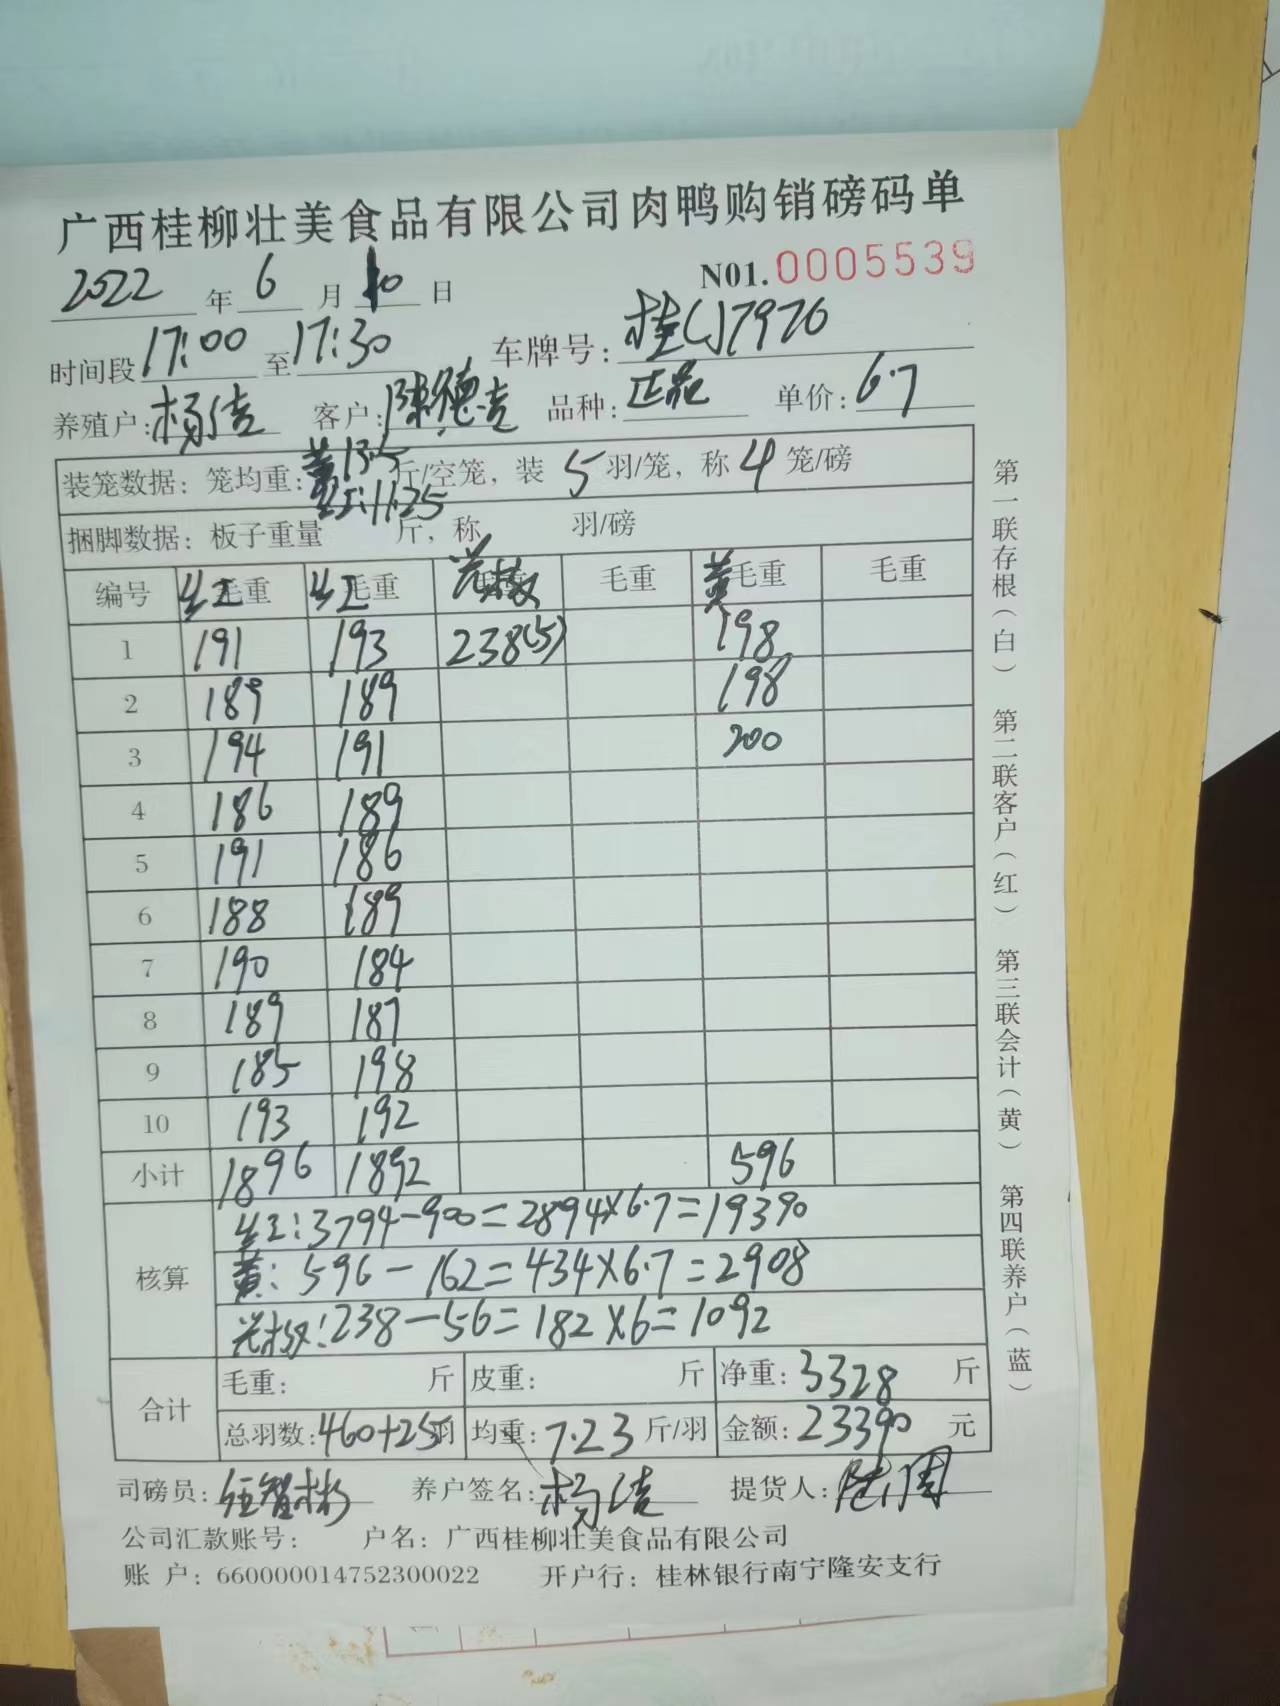 广西桂柳壮美食品有限公司肉鸭购销磅码单
2022 年 6 月 10 日 N01. 0005539
时间段 17:00 至 17:30 车牌号: 桂 7970
养殖户: 杨洁 客户: 陈德志 品种: 正品 单价: 6.7
装笼数据: 笼均重: 黄13.5 斤/空笼, 装 5 羽/笼, 称 4 笼/磅
红:11.25
捆脚数据: 板子重量 斤, 称 羽/磅
编号 红毛重 红毛重 次 毛重 黄毛重 毛重
1 191 193 238(5) 198
2 189 189 198
3 194 191 200
4 186 189
5 191 186
6 188 189
7 190 184
8 189 187
9 185 198
10 193 192
小计 1896 1892 596
核算
红:3794-900=2894×6.7=19390
黄:596-162=434×6.7=2908
次:238-56=182×6=1092
合计
毛重: 斤 皮重: 斤 净重: 3328 斤
总羽数: 460+25羽 均重: 7.23 斤/羽 金额: 23390 元
司磅员: 养户签名: 杨洁 提货人:
公司汇款账号: 户名: 广西桂柳壮美食品有限公司
账 户: 660000014752300022 开户行: 桂林银行南宁隆安支行
第一联存根(白) 第二联客户(红) 第三联会计(黄) 第四联养户(蓝)